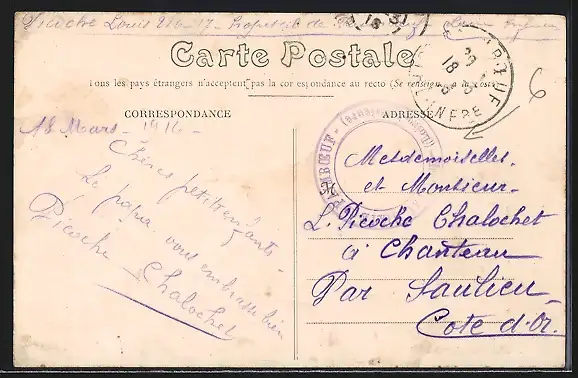 Picoche Louis 216-17-
Carte Postale
Tous les pays étrangers n'acceptent pas la correspondance au recto (Se renseigner à la poste)
CORRESPONDANCE
ADRESSE
18 Mars - 1916 -
Chères petits enfants -
Le papa vous embrasse bien
Picoche Chalochet
Mesdemoiselles
et Monsieur
L. Picoche Chalochet
à Chanteau
Par Saulieu
Cote d'Or.
PAIMBŒUF
6